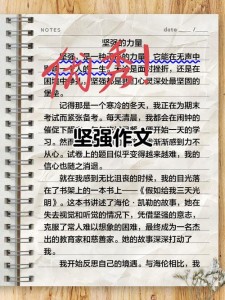 NOTES
date
坚强的力量
坚强，是一种
它能在无声中
一个人的一生。无论是面对挫折，还是在
坚强都是我们心灵深处最坚固的
堡垒。
记得那是一个寒冷的冬天，我正在为期末
考试而紧张备考。每天清晨，我都会在闹钟的
催促下
开始一天的学
习。然
渐渐感到力不
从心。试卷上的题目似乎变得越来越难，我的
信心也随之消退。
坚强作文
就在我感到无比沮丧的时候，我的目光落
在了书架上的一本书上——《假如给我三天光
明》。这本书讲述了海伦·凯勒的故事，她在
失去视觉和听觉的情况下，凭借坚强的意志，
克服了常人难以想象的困难，最终成为一名杰
出的教育家和慈善家。她的故事深深打动了
我。
我开始反思自己的境遇。与海伦相比，我